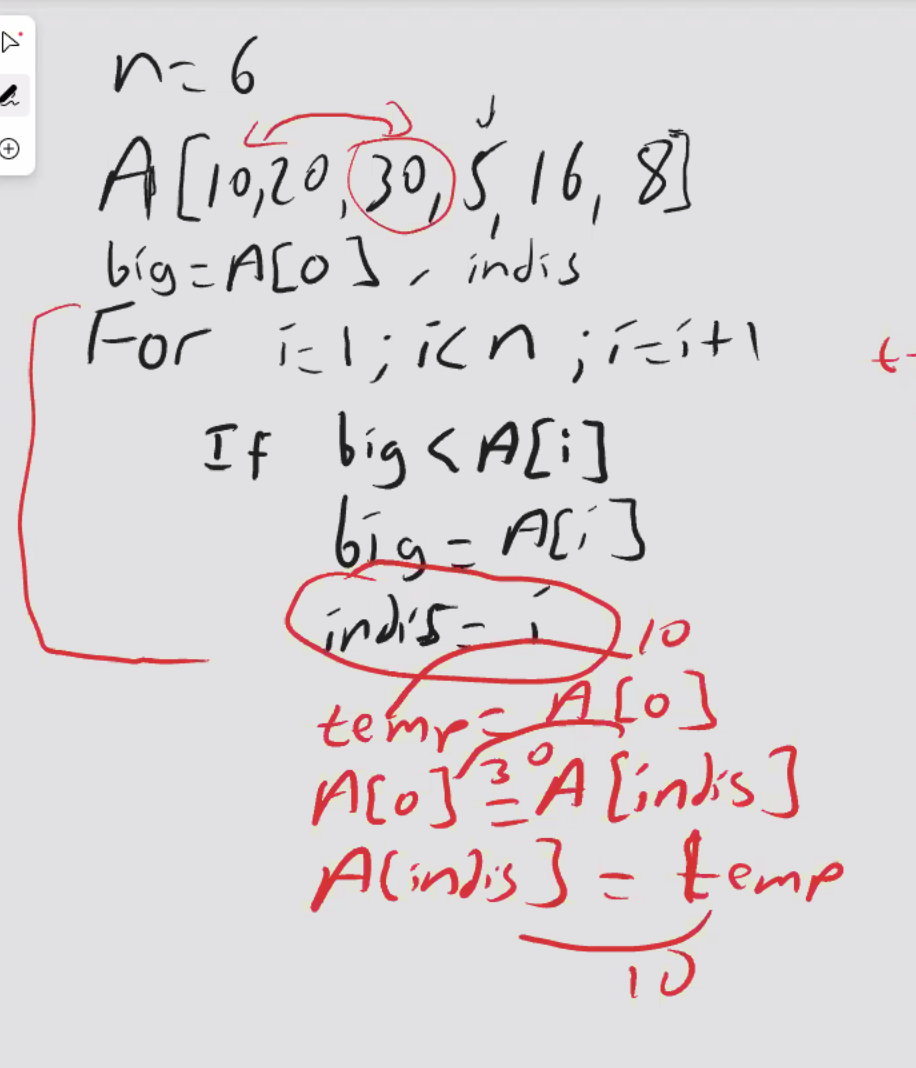 n=6
A[10,20,30,5,16,8]
big=A[0], indis
For i=1; i<n; i=i+1
t-
If big<A[i]
big=A[i]
indis=i
10
temp=A[0]
30
A[0]=A[indis]
A[indis]=temp
10